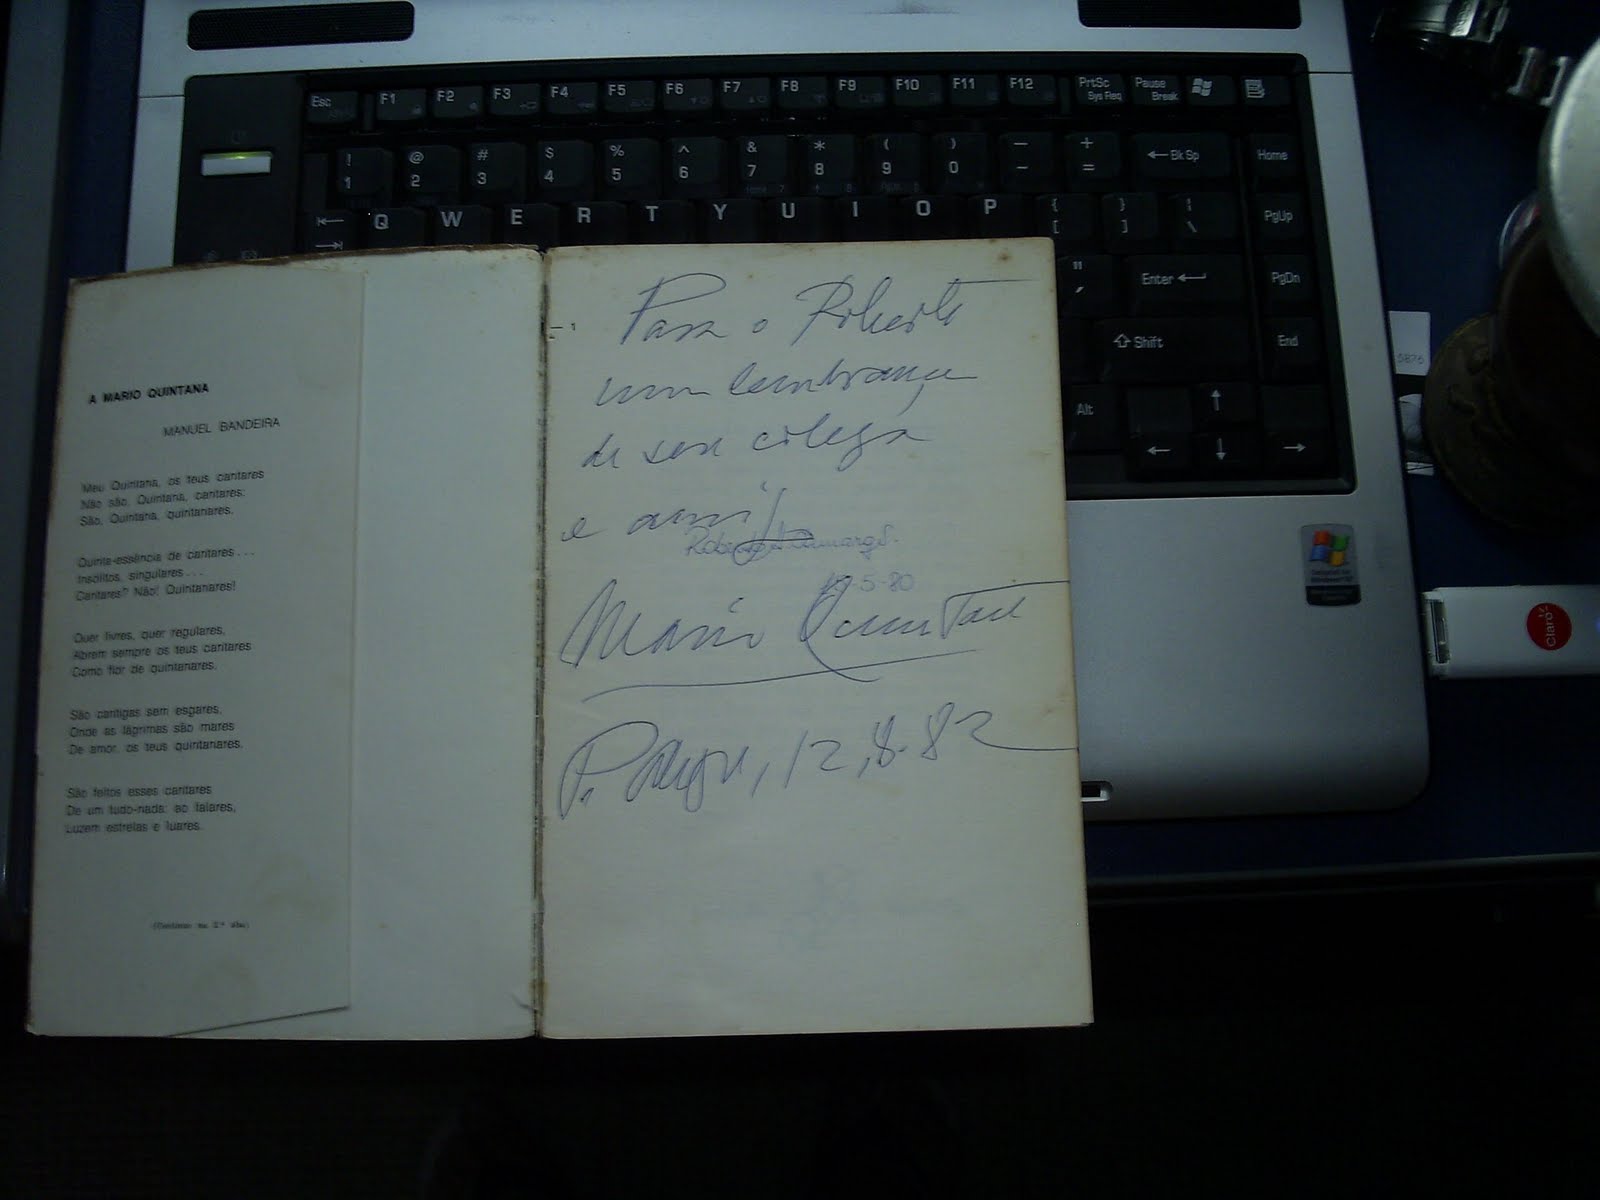 A MARIO QUINTANA
MANUEL BANDEIRA
Meu Quintana, os teus cantares
Não são, Quintana, cantares:
São, Quintana, quintanares.
Quinta-essência de cantares...
Insólitos, singulares...
Cantares? Não! Quintanares!
Quer livres, quer regulares,
Abrem sempre os teus cantares
Como flor de quintanares.
São cantigas sem esgares,
Onde as lágrimas são mares
De amor, os teus quintanares.
São feitos esses cantares
De um tudo-nada: ao falares,
Luzem estrelas e luares.
(Continua na 2.ª aba)
— 1
Para o Roberto
uma lembrança
de seu colega
e amigo
Mario Quintana
P. Alegre, 12,8.82
-5-80
Esc F1 F2 F3 F4 F5 F6 F7 F8 F9 F10 F11 F12 PrtSc Sys Req Pause Break
! 1 @ 2 # 3 $ 4 % 5 ^ 6 & 7 * 8 ( 9 ) 0 — - + = ← Bk Sp Home
Q W E R T Y U I O P { [ } ] | \ PgUp
" ' Enter PgDn
Shift End
Alt ↑
← ↓ →
Claro